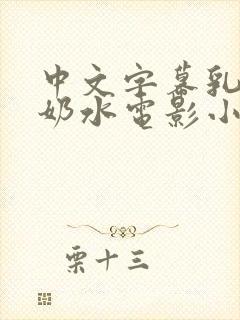 中文字幕乳
奶水电影小
栗十三